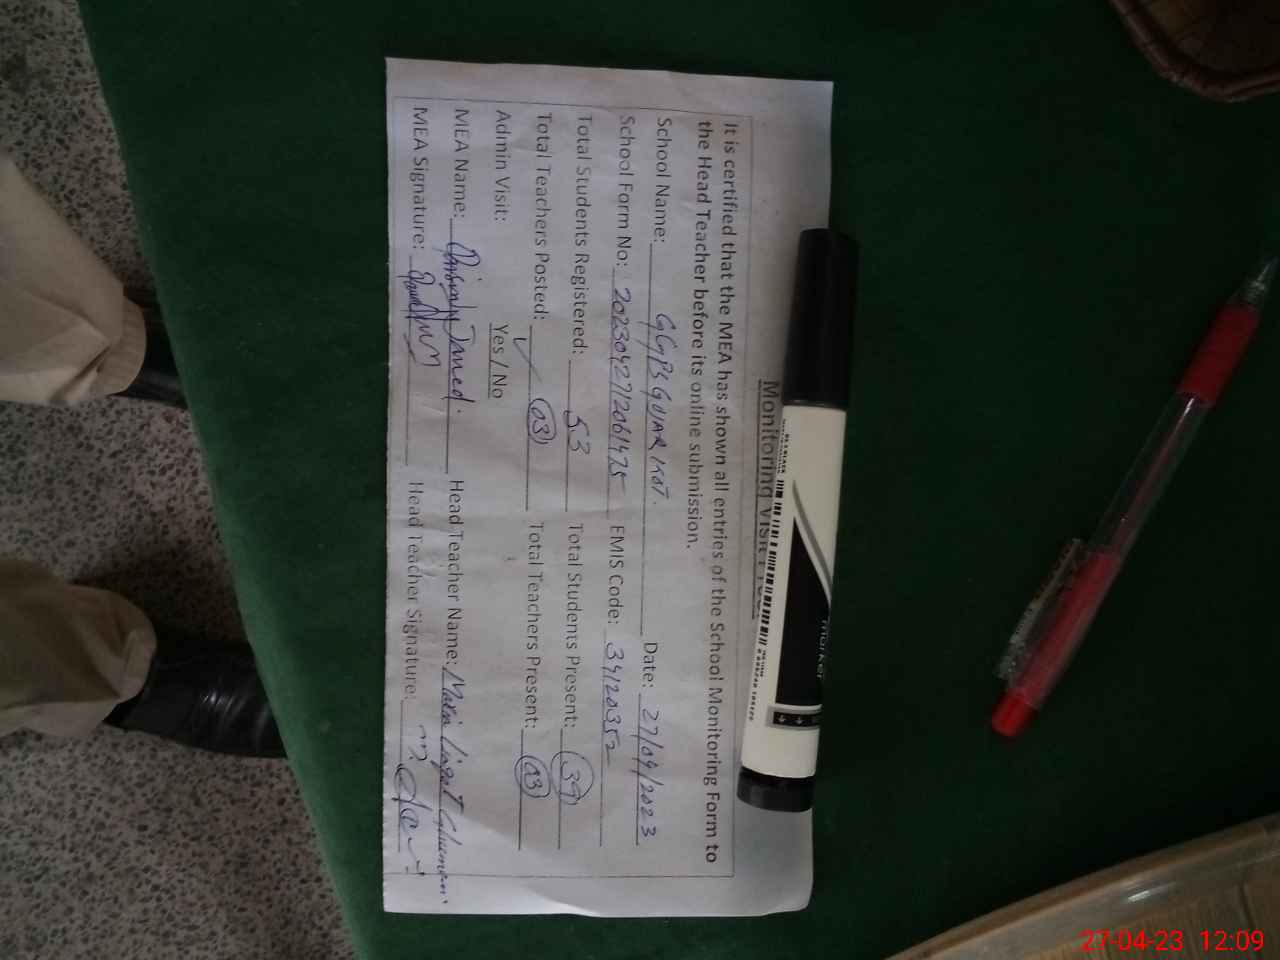 Monitoring Visit
It is certified that the MEA has shown all entries of the School Monitoring Form to
the Head Teacher before its online submission.
School Name: GGPS GUJAR KOT. Date: 27/04/2023
School Form No: 2023042712061475 EMIS Code: 34120352
Total Students Registered: 53 Total Students Present: 39
Total Teachers Posted: 03 Total Teachers Present: 03
Admin Visit: Yes / No
MEA Name: Head Teacher Name:
MEA Signature: Head Teacher Signature:
marker
27-04-23 12:09